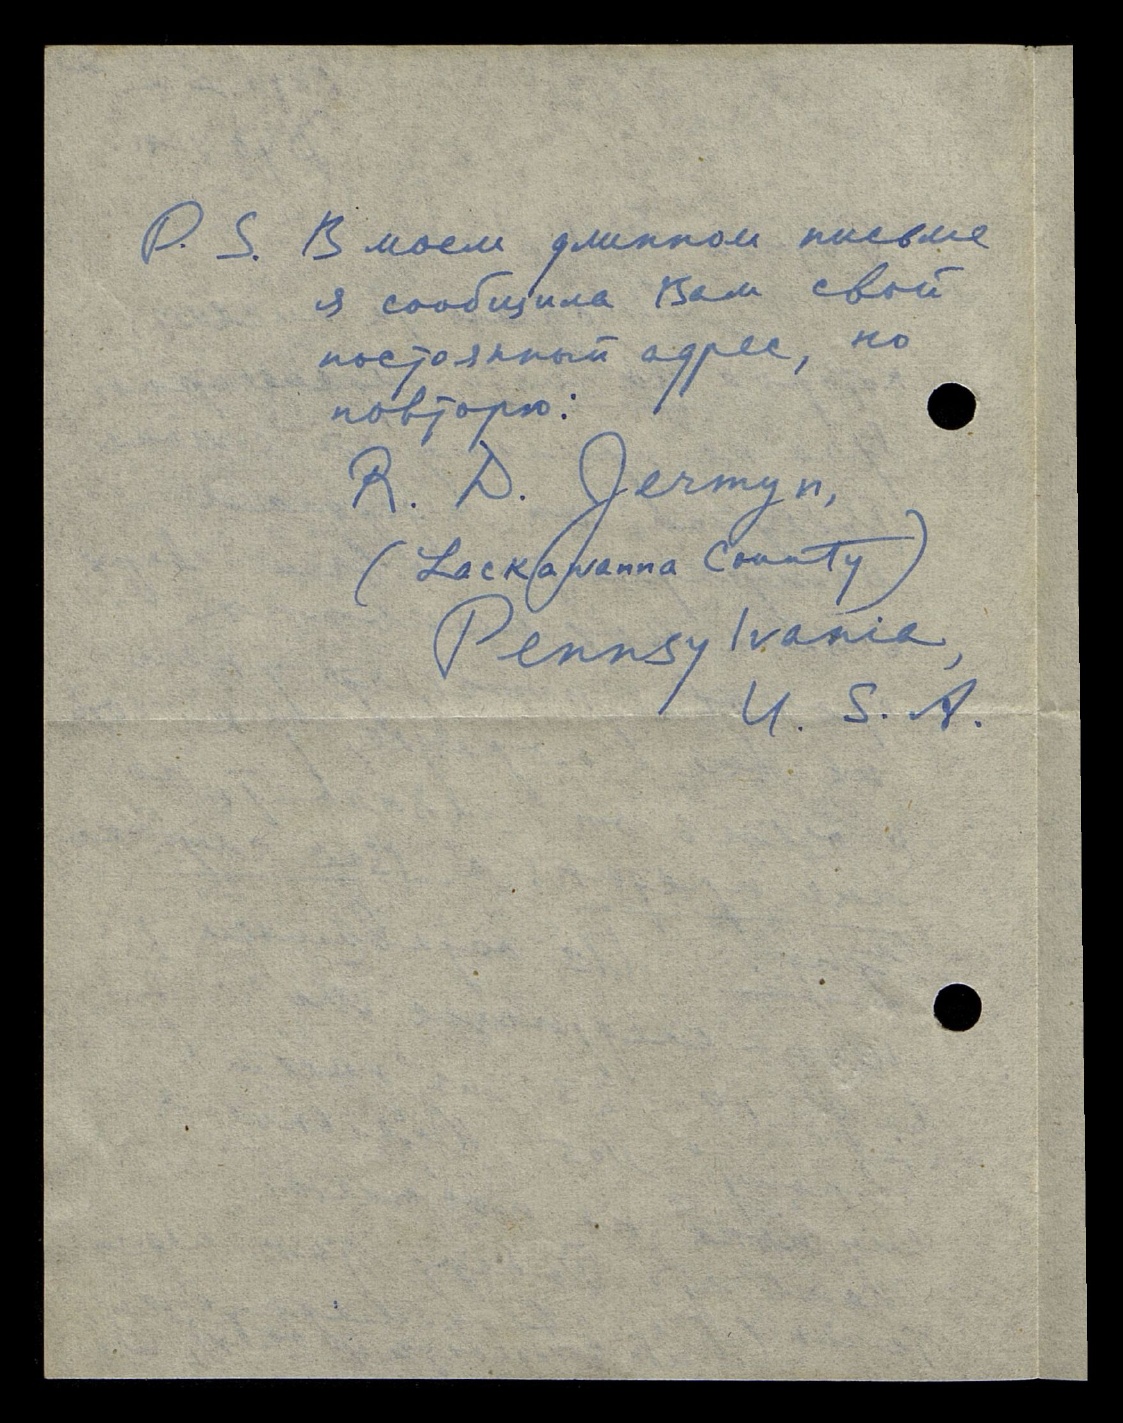 P. S. В моем длинном письме
я сообщила Вам свой
постоянный адрес, но
повторю:
R. D. Jermyn,
(Lackawanna County)
Pennsylvania,
U. S. A.